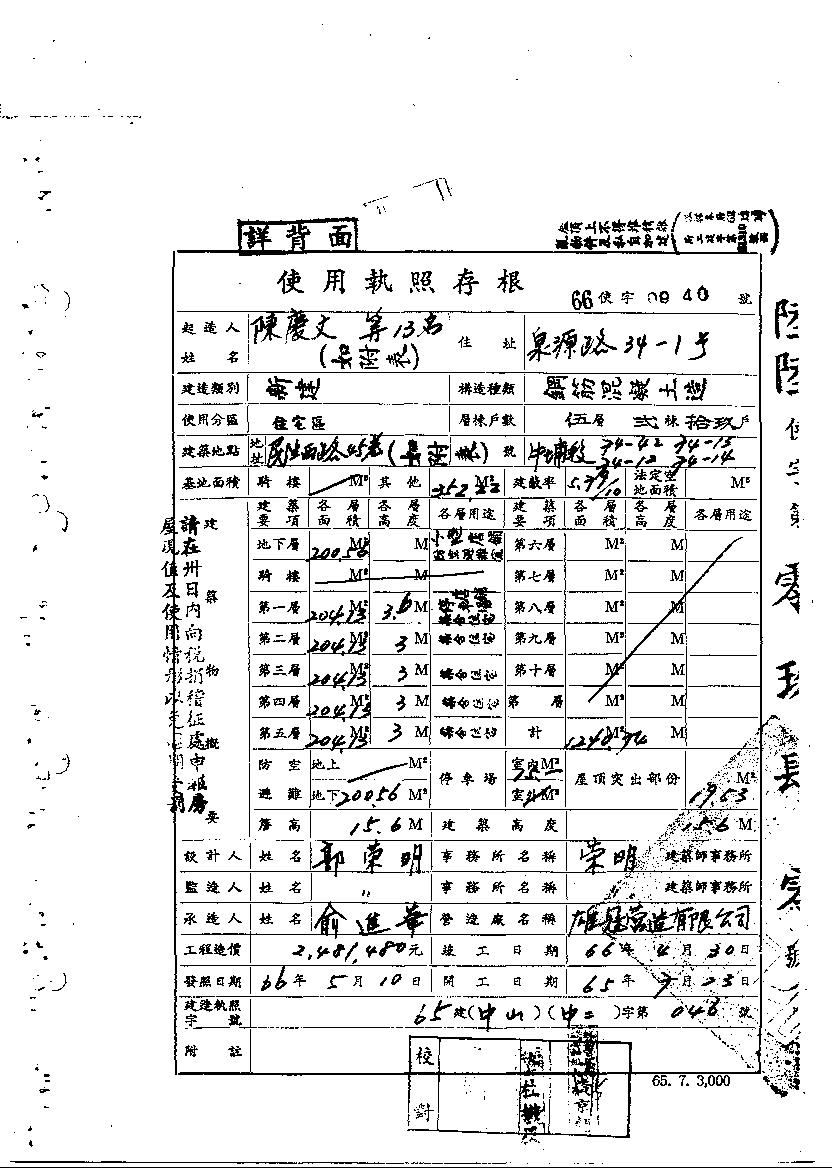 詳背面
使用執照存根
66 使字 0940 號
起造人姓名 陳慶文 等13名 住址 泉源路34-1号
建造類別 新建 構造種類 鋼筋混凝土造
使用分區 住宅區 層棟戶數 伍層 弍棟 拾玖戶
建築地點 地址 民生西路45巷 號 74-42 74-13
74-12 74-14
基地面積 騎樓 M² 其他 352.22 M² 建蔽率 /10 法定空地面積 M²
建築要項 各層面積 各層高度 各層用途 建築要項 各層面積 各層高度 各層用途
地下層 200.56 M² M 第六層 M² M
騎樓 M² M 第七層 M² M
第一層 204.13 M² 3.6 M 第八層 M² M
第二層 204.13 M² 3 M 集合住宅 第九層 M² M
第三層 204.13 M² 3 M 集合住宅 第十層 M² M
第四層 204.13 M² 3 M 集合住宅 第 層 M² M
第五層 204.13 M² 3 M 集合住宅 計 1240.74 M²
防空避難 地上 M² 停車場 室內 M² 屋頂突出部份 M²
地下 200.56 M² 室外 M² 19.53
簷高 15.6 M 建築高度 15.6 M
設計人 姓名 郭榮明 事務所名稱 榮明 建築師事務所
監造人 姓名 〃 事務所名稱 〃 建築師事務所
承造人 姓名 俞進華 營造廠名稱 營造有限公司
工程造價 2,481,480元 竣工日期 66年4月30日
發照日期 66年5月10日 開工日期 65年9月23日
建造執照字號 65建(中山)(中二)字第 046 號
附註
建築物概要
請在卅日內向稅捐稽征處申報房屋現值及使用情形以免
校對
65. 7. 3,000
陸陸使字第零玖肆零號